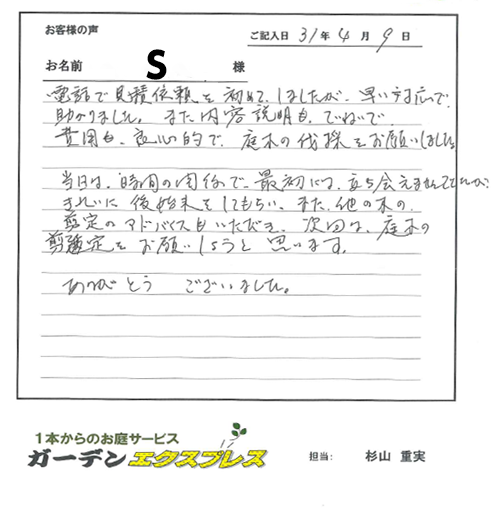 お客様の声
ご記入日 31年 4月 9日
お名前 S 様
電話で見積依頼を初めて、しましたが、早い対応で
助かりました。また内容説明も、ていねいで
費用も、良心的で、庭木の伐採をお願いしました
当日は、時間の関係で、最初には、立ち会えませんでしたが、
きれいに後始末をしてもらい、また、他の木の、
剪定のアドバイスもいただき、次回は、庭木の
剪定をお願いしようと思います。
ありがとう ございました。
1本からのお庭サービス
ガーデンエクスプレス
担当: 杉山 重実